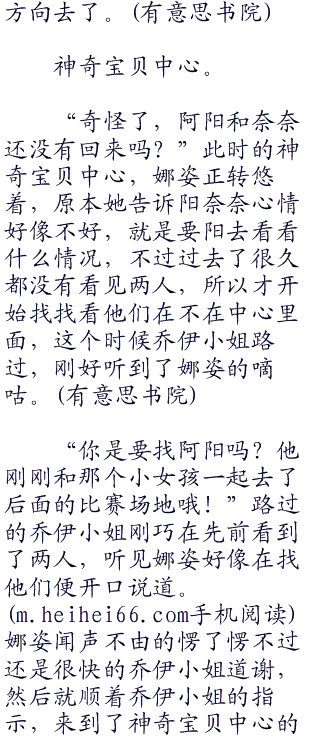 方向去了。(有意思书院)
神奇宝贝中心。
“奇怪了，阿阳和奈奈
还没有回来吗？”此时的神
奇宝贝中心，娜姿正转悠
着，原本她告诉阳奈奈心情
好像不好，就是要阳去看看
什么情况，不过过去了很久
都没有看见两人，所以才开
始找找看他们在不在中心里
面，这个时候乔伊小姐路
过，刚好听到了娜姿的嘀
咕。(有意思书院)
“你是要找阿阳吗？他
刚刚和那个小女孩一起去了
后面的比赛场地哦！”路过
的乔伊小姐刚巧在先前看到
了两人，听见娜姿好像在找
他们便开口说道。
(m.heihei66.com手机阅读)
娜姿闻声不由的愣了愣不过
还是很快的乔伊小姐道谢，
然后就顺着乔伊小姐的指
示，来到了神奇宝贝中心的